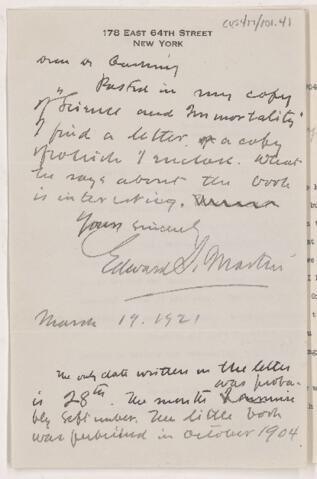 CUS417/101.41
178 EAST 64TH STREET
NEW YORK
Dear Dr Cushing
Pasted in my copy
of "Science and Immortality"
I find a letter, a copy
of which I enclose. What
he says about the book
is interesting.
Yours sincerely
Edward S. Martin
March 19. 1921
The only date written in the letter
is 28th. The month was proba-
bly September. The little book
was published in October 1904